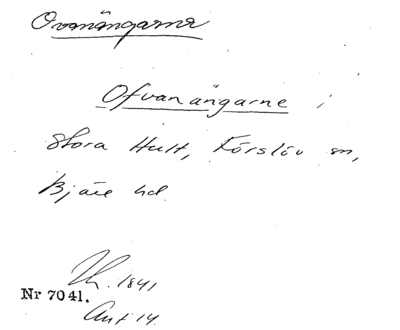 Ovanängarna
Ofvanängarne i
Stora Hult, Förslöv sn,
Bjäre hd.
1841
Nr 7041.
Art 14.